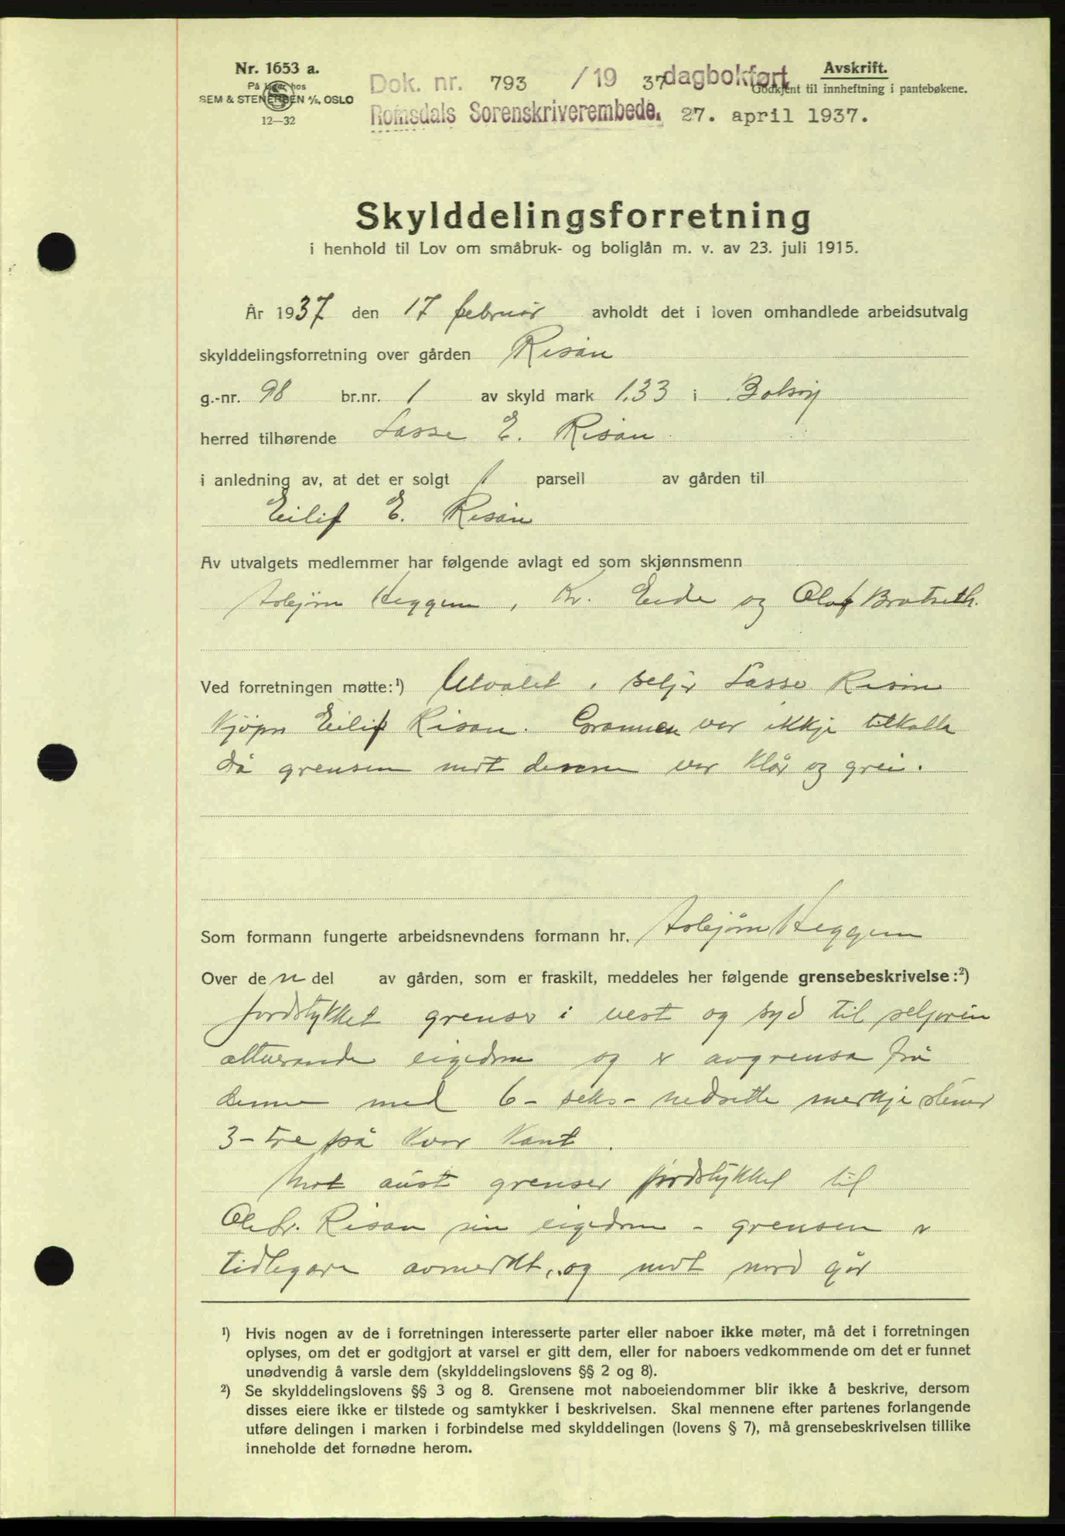 Nr. 1653 a.
På lager hos
SEM & STENERSEN A/S, OSLO
12—32
Dok. nr. 793 /19 37 dagbokført
Romsdals Sorenskriverembede. 27. april 1937.
Avskrift.
Godkjent til innheftning i pantebøkene.
Skylddelingsforretning
i henhold til Lov om småbruk- og boliglån m. v. av 23. juli 1915.
År 1937 den 17 februar avholdt det i loven omhandlede arbeidsutvalg
skylddelingsforretning over gården Risan
g.-nr. 98 br.nr. 1 av skyld mark 1.33 i Bolsøy
herred tilhørende Lasse E. Risan
i anledning av, at det er solgt 1 parsell av gården til
Eilif E. Risan
Av utvalgets medlemmer har følgende avlagt ed som skjønnsmenn
Asbjørn Heggem, Kr. Eide og Olaf Bratseth.
Ved forretningen møtte:¹) Utvalet, seljer Lasse Risan
kjøper Eilif Risan. Grannen var ikkje tilkalla
då grensen mot denne var klår og grei.
Som formann fungerte arbeidsnevndens formann hr. Asbjørn Heggem
Over de n del av gården, som er fraskilt, meddeles her følgende grensebeskrivelse:²)
Jordstykket grenser i vest og syd til seljaren
attverande eigedom og er avgrensa frå
denne med 6 - seks - nedsette merkje stener
3 - tre på kvar kant.
Mot aust grenser jordstykket til
Ole Risan sin eigedom - grensen er
tidlegare avmerkt, og mot nord går
¹) Hvis nogen av de i forretningen interesserte parter eller naboer ikke møter, må det i forretningen
oplyses, om det er godtgjort at varsel er gitt dem, eller for naboers vedkommende om det er funnet
unødvendig å varsle dem (skylddelingslovens §§ 2 og 8).
²) Se skylddelingslovens §§ 3 og 8. Grensene mot naboeiendommer blir ikke å beskrive, dersom
disses eiere ikke er tilstede og samtykker i beskrivelsen. Skal mennene efter partenes forlangende
utføre delingen i marken i forbindelse med skylddelingen (lovens § 7), må grensebeskrivelsen tillike
inneholde det fornødne herom.